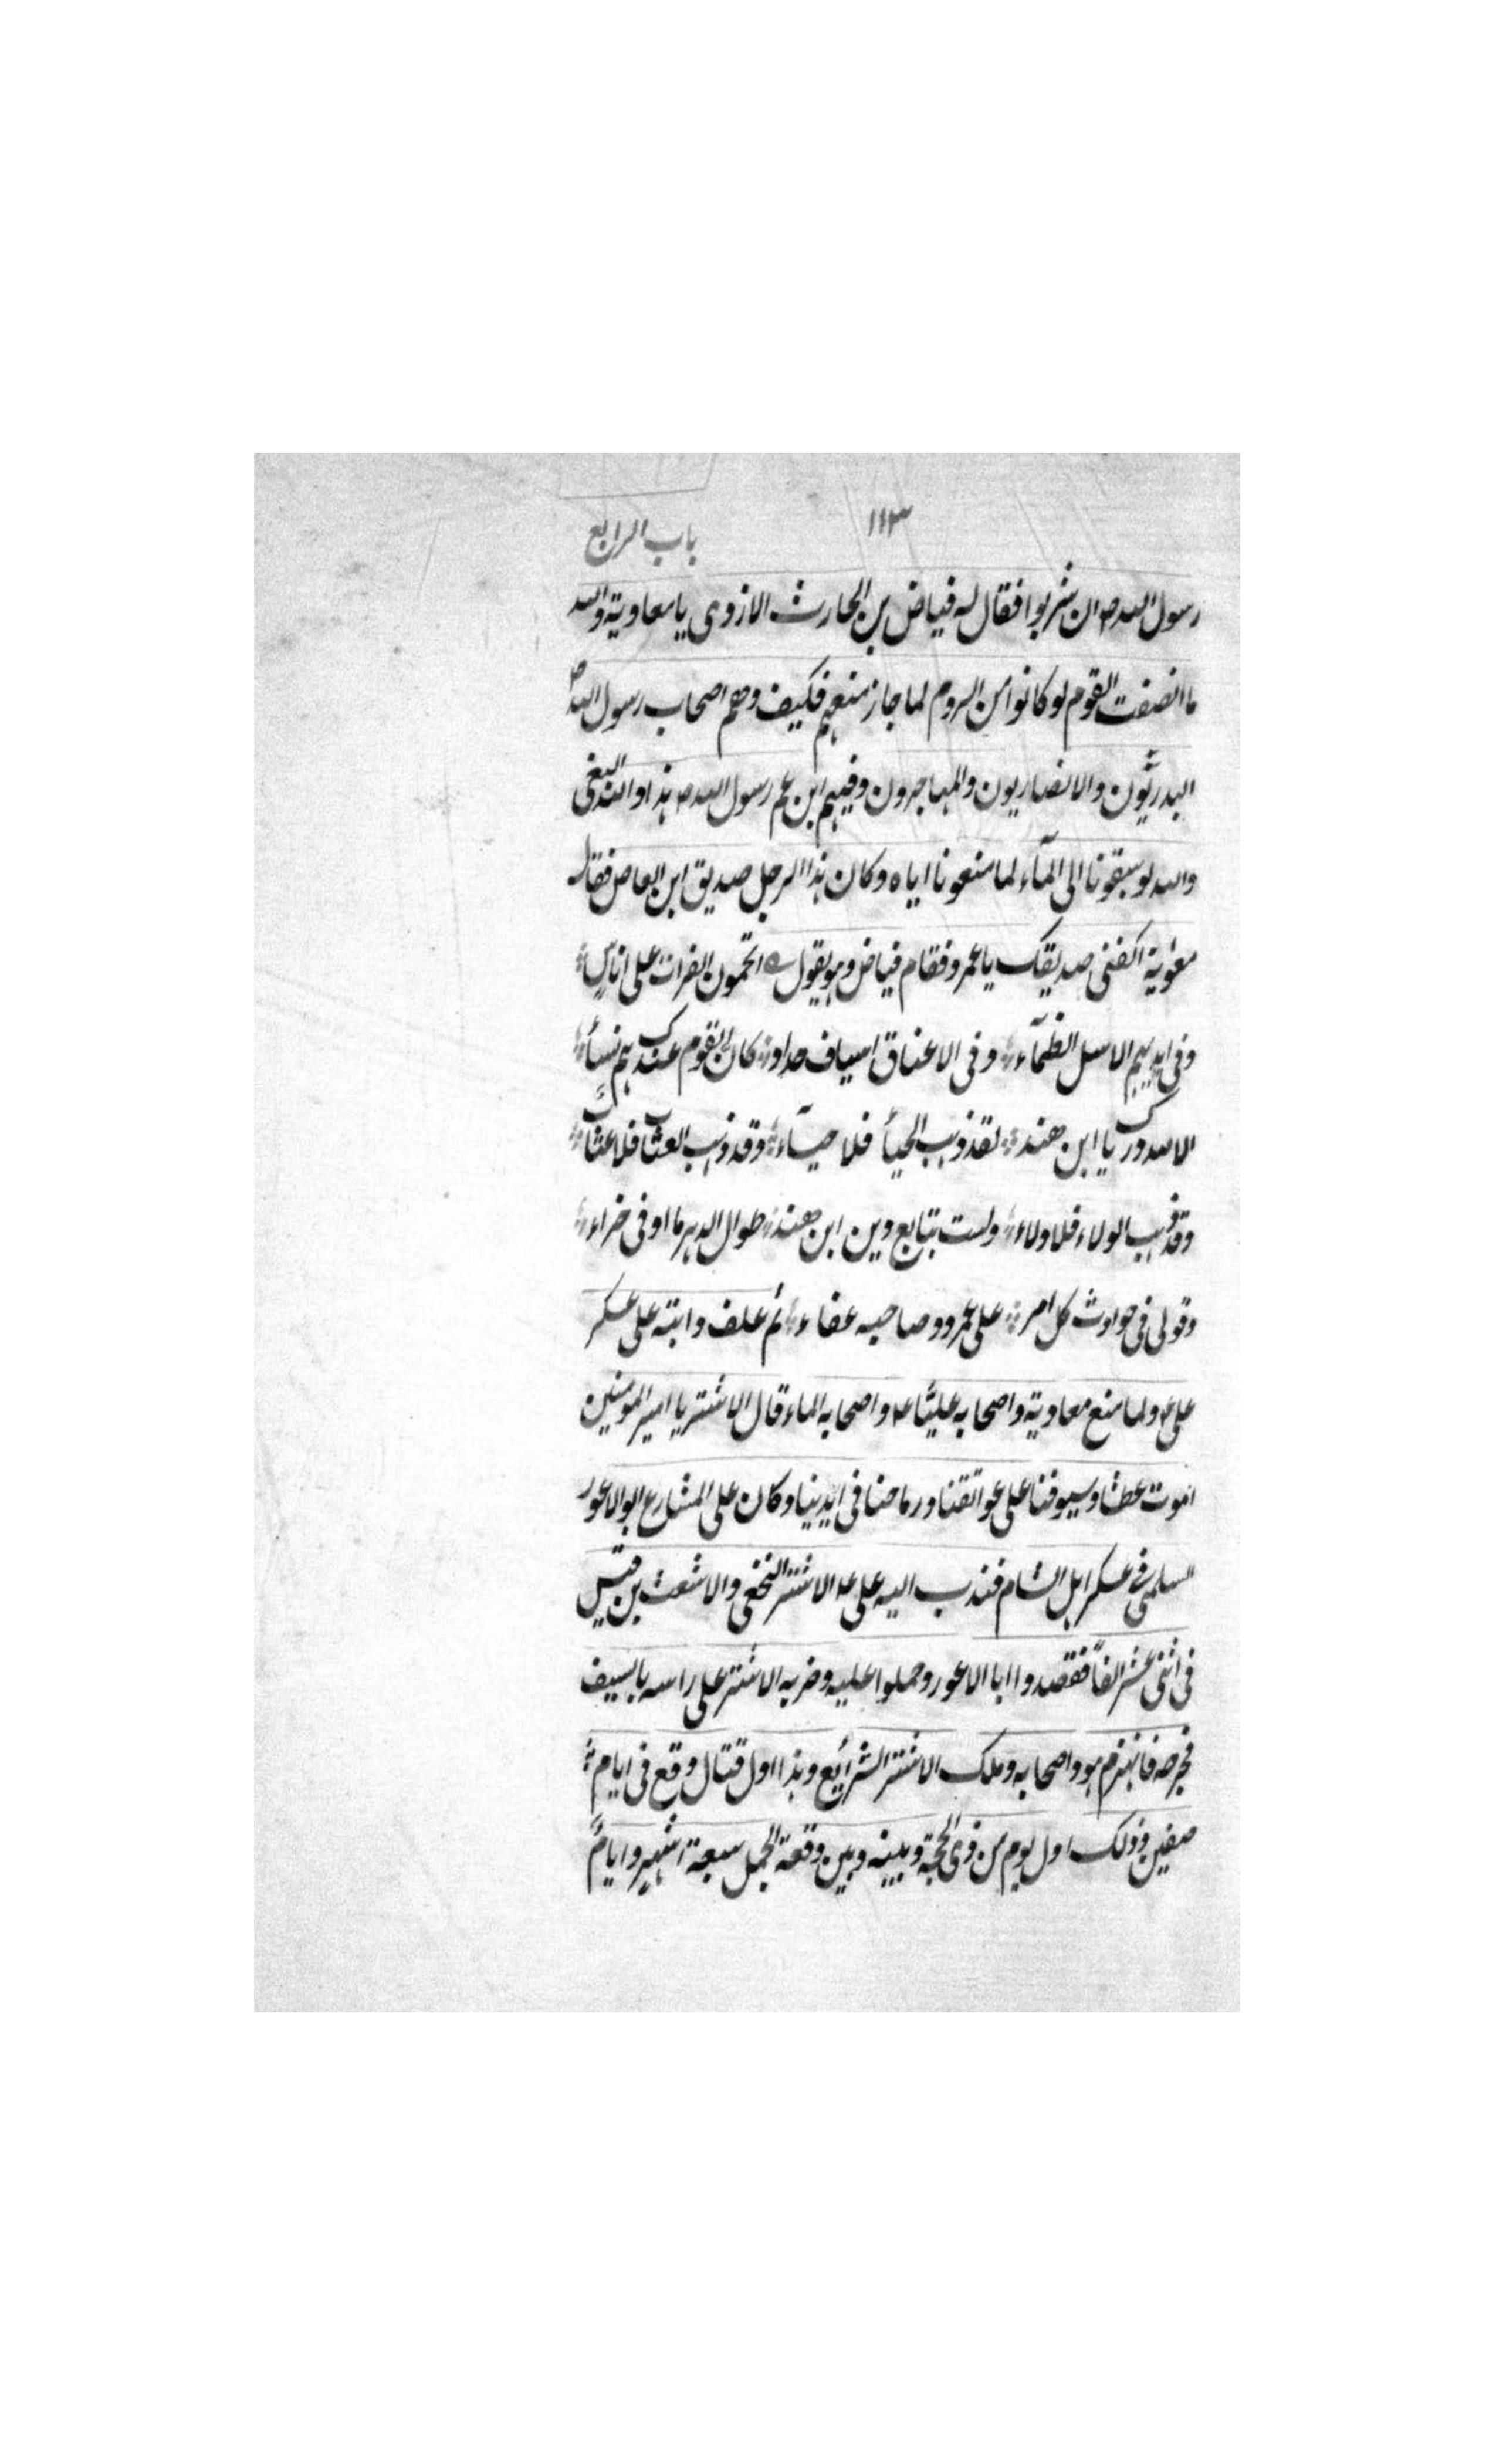 ١١٣
باب الرابع
رسول الله ص ان شربوا فقال له فياض بن الحارث الازدى يا معاوية والله
ما انصفت القوم لو كانوا من الروم لما جاز منعهم فكيف وهم اصحاب رسول الله ص
البدريّون والانصاريون والمهاجرون وفيهم ابن عم رسول الله ص هذا والله البغى
والله لو سبقونا الى المآء لما منعونا اياه وكان هذا الرجل صديق ابن العاص فقال
معوية اكفنى صديقك يا عمرو فقام فياض وهو يقول اتحمون الفرات على اناسٍ
وفى ايديهم الاسل الظمآء وفى الاعناق اسياف حداد كان القوم عندكم نسآء
الا لله درك يا ابن هند لقد ذهب الحيآ فلا حيآء وقد ذهب العتاب فلا عتاب
وقد ذهب الولاء فلا ولاء ولست بتابع دين ابن هند طوال الدهر ما اوفى حراء
وقولى فى حوادث كل امر على عمرو وصاحبه عفاء ثم علف دابته على عسكر
على ع ولما منع معاوية واصحابه عليّا ع واصحابه الماء قال الاشتر يا امير المومنين
انموت عطشا وسيوفنا على عواتقنا ورماحنا فى ايدينا وكان على المشارع ابو الاعور
السلمى فى عسكر اهل الشام فندب اليه على ع الاشتر النخعى والاشعث بن قيس
فى اثنى عشر الفاً فقصدوا ابا الاعور وحملوا عليه وضربه الاشتر على راسه بالسيف
فجرحه فانهزم هو واصحابه وملك الاشتر الشرائع وهذا اول قتال وقع فى ايام
صفين وذلك اول يوم من ذى الحجة وبينه وبين وقعة الجمل سبعة اشهر وايامٌ